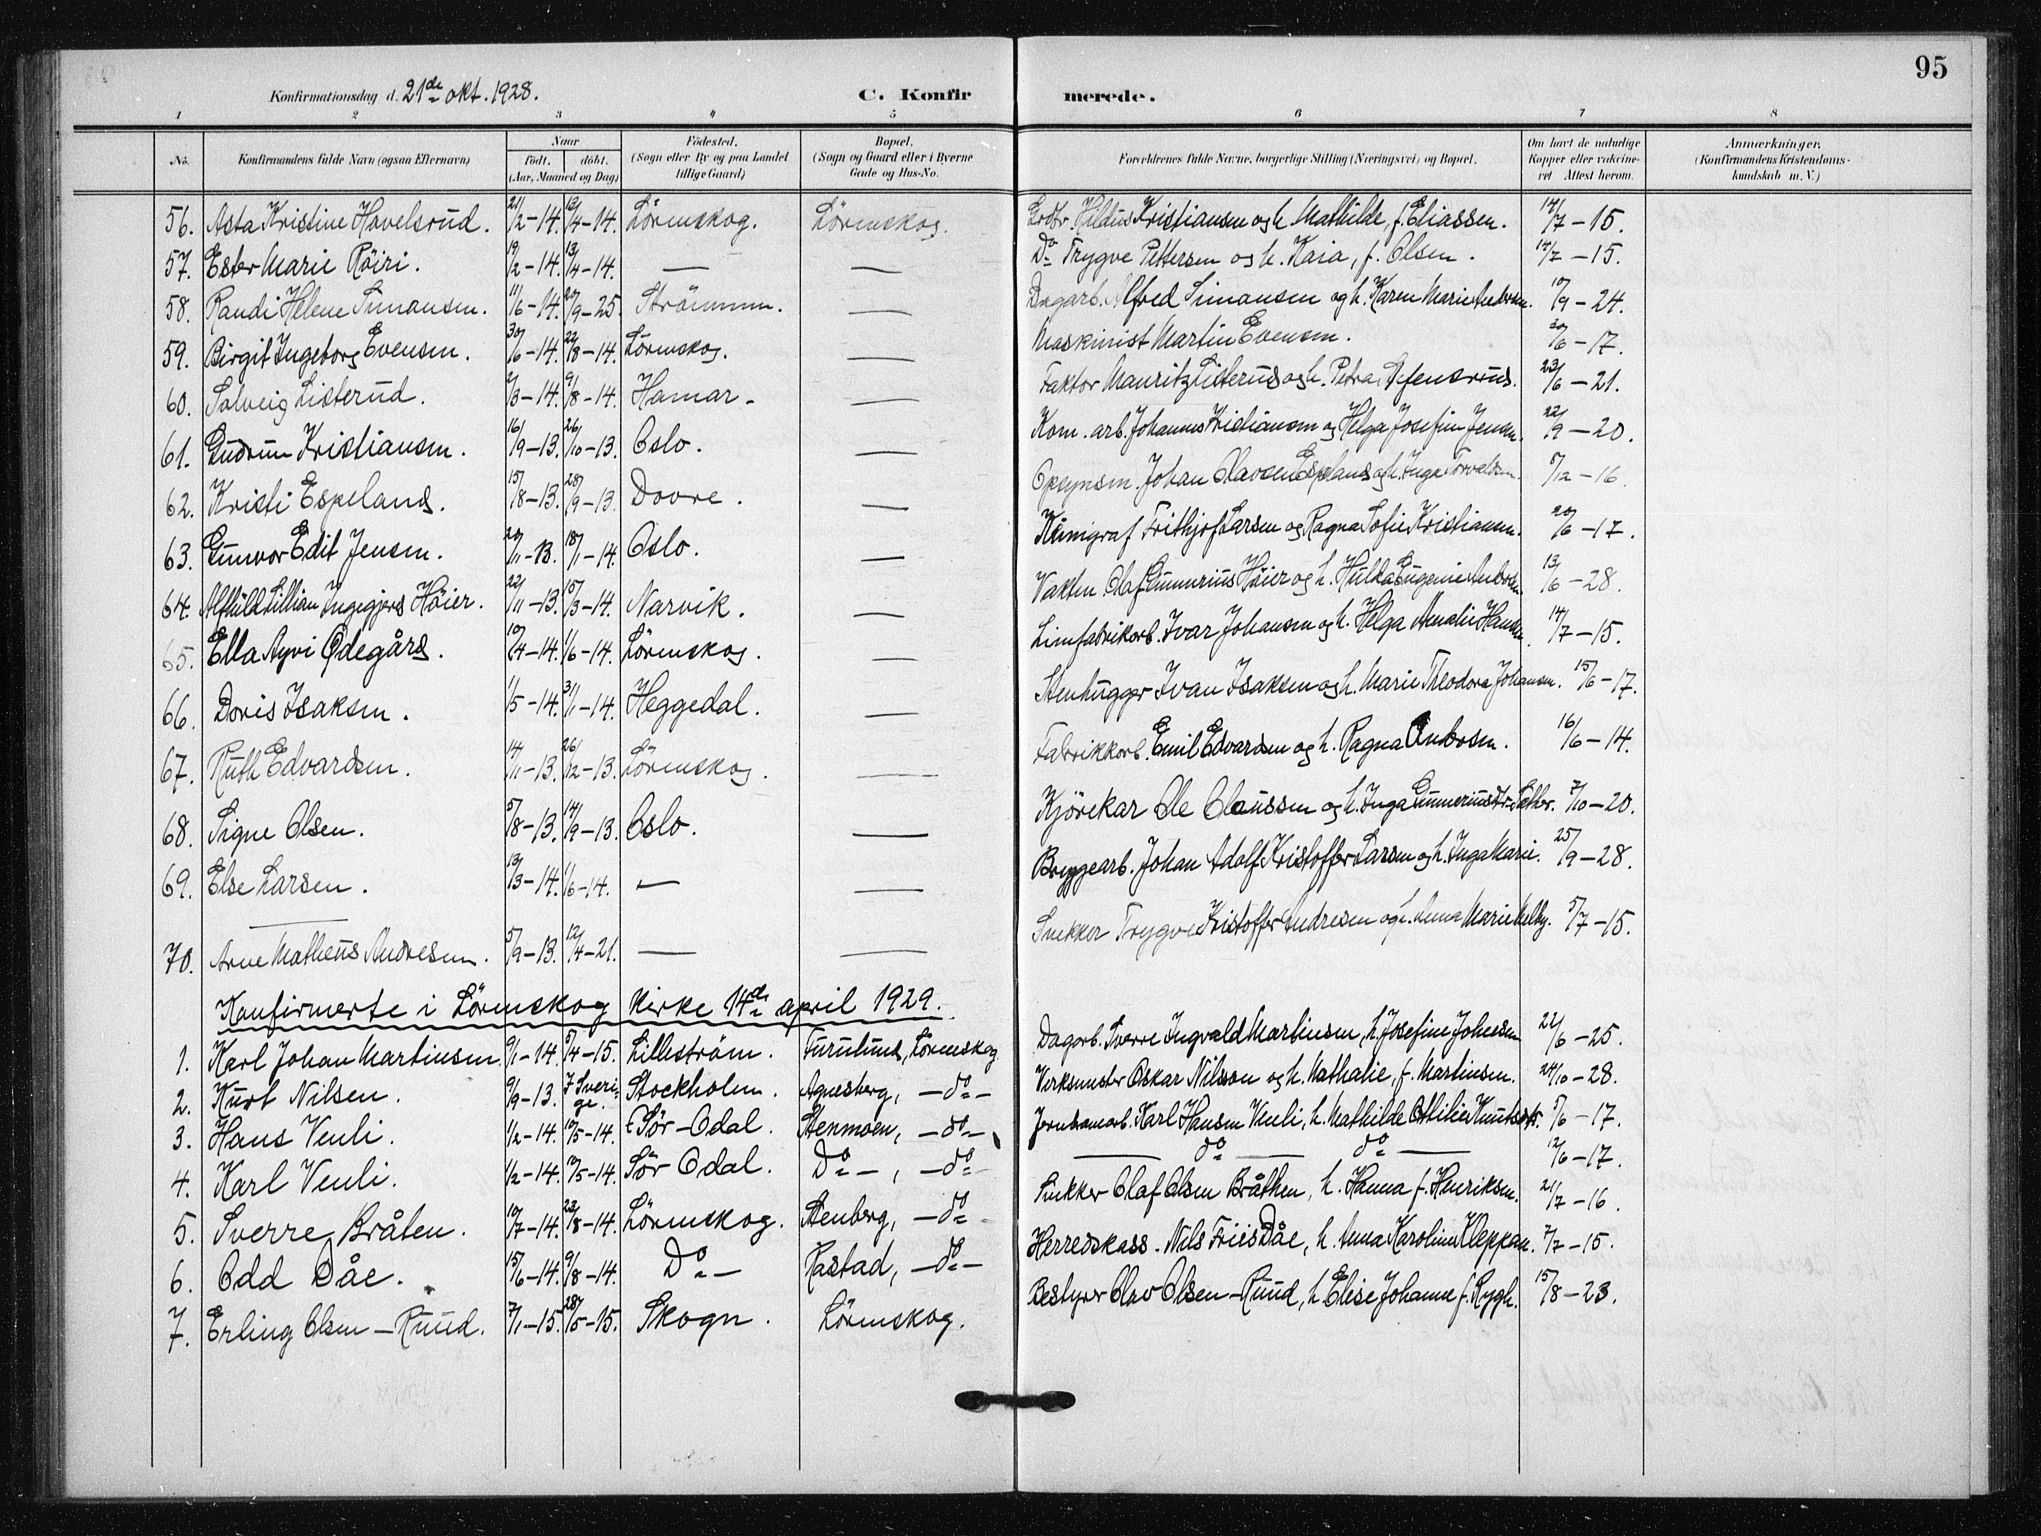 95
Konfirmationsdag d. 21de okt. 1928.
C. Konfirmerede.
1 2 3 4 5 6 7 8
No. Konfirmandens fulde Navn (ogsaa Efternavn) Naar født. døbt. (Aar, Maaned og Dag) Fødested. (Sogn eller By og paa Landet tillige Gaard) Bopæl. (Sogn og Gaard eller i Byerne Gade og Hus-No. Forældrenes fulde Navne, borgerlige Stilling (Næringsvei) og Bopæl. Om havt de naturlige Kopper eller vaccineret Attest herom. Anmærkninger. (Konfirmandens Kristendomskundskab m. V.)
56. Asta Kristine Hovelsrud. 21/2-14. 13/4-14. Lörenskog. Lörenskog. Kristiansen og h. Mathilde, f. Eliassen. 14/7-15.
57. Ester Marie Röiri. 19/2-14. 13/4-14. — — Do Trygve Pettersen og h. Kaia, f. Olsen. 14/7-15.
58. Randi Helene Simansen. 11/6-14. 20/9-25. Strömmen. — Dagarb. Alfred Simansen og h. Karen Marie 10/9-24.
59. Birgit Ingeborg Evensen. 30/6-14. 22/8-14. Lörenskog. — Maskinist Martin Evensen. 20/6-17.
60. Solveig Listerud. 2/3-14. 9/8-14. Hamar. — Faktor Mauritz Listerud og h. Petra 23/6-21.
61. Gudrun Kristiansen. 16/9-13. 26/10-13. Oslo. — Kom. arb. Johannes Kristiansen og Helga Josefine Jensen. 22/9-20.
62. Kristi Espeland. 15/8-13. 28/9-13. Dovre. — Opsynsm. Johan Olavsen Espeland og h. Inga Torvaldsen. 8/12-16.
63. Gunvor Edit Jensen. 20/11-13. 18/1-14. Oslo. — Frithjof Larsen og Ragna Sofie Kristiansen. 20/6-17.
64. Alfhild Lillian Ingegjerd Höier. 22/11-13. 15/3-14. Narvik. — Vaktm. Olaf Gunnerius Höier og h. Hulda Eugenie 13/6-28.
65. Ella Ayvi Ödegård. 10/4-14. 1/6-14. Lörenskog. — Limfabrikarb. Ivar Johansen og h. Helga Amalie Hansen. 14/7-15.
66. Doris Isaksen. 1/5-14. 31/11-14. Heggedal. — Stenhugger Ivan Isaksen og h. Marie Theodora Johansen. 15/6-17.
67. Ruth Edvardsen. 14/11-13. 26/12-13. Lörenskog. — Fabrikkarb. Emil Edvardsen og h. Ragna 16/6-14.
68. Signe Olsen. 5/8-13. 14/9-13. Oslo. — Kjörekar Ole Claussen og h. Inga 7/10-20.
69. Else Larsen. 13/3-14. 1/6-14. — — Bryggearb. Johan Adolf Kristoffer Larsen og h. Inga Marie. 25/9-28.
70. Arne Matheus Andresen. 5/9-13. 12/4-21. — — Snekker Trygve Kristoffer Andresen og h. Anna Marie Melby. 5/7-15.
Konfirmerte i Lörenskog kirke 14de april 1929.
1. Karl Johan Martinsen. 9/1-14. 5/4-15. Lilleström. Furulund, Lörenskog Dagarb. Sverre Ingvald Martinsen, h. Josefine 22/6-25.
2. Kurt Nilsen. 9/9-13. I Sverige. Stockholm. Agnesberg, —do— Verksmester Oskar Nilsson og h. Mathalie, f. Martinsen. 24/10-28.
3. Hans Venli. 1/2-14. 10/5-14. Sör-Odal. Stenmoen, —do— Jernbanearb. Karl Hansen Venli, h. Mathilde Ottilie 5/6-17.
4. Karl Venli. 1/2-14. 10/5-14. Sör Odal. Do—, —do— — do — do — 12/6-17.
5. Sverre Bråten. 10/7-14. 23/8-14. Lörenskog. Stenberg, —do— Snekker Olaf Olsen Bråthen, h. Hanna f. Henriksen. 21/7-16.
6. Odd Dåe. 15/6-14. 9/8-14. Do— Rastad, —do— Herredskass. Nils Friis Dåe, h. Anna Karoline Kleppan. 7/7-15.
7. Erling Olsen-Ruud. 7/1-15. 28/5-15. Skogn. Lörenskog. Bestyrer Olav Olsen-Ruud, h. Elise Johanne f. Rygh. 15/8-23.